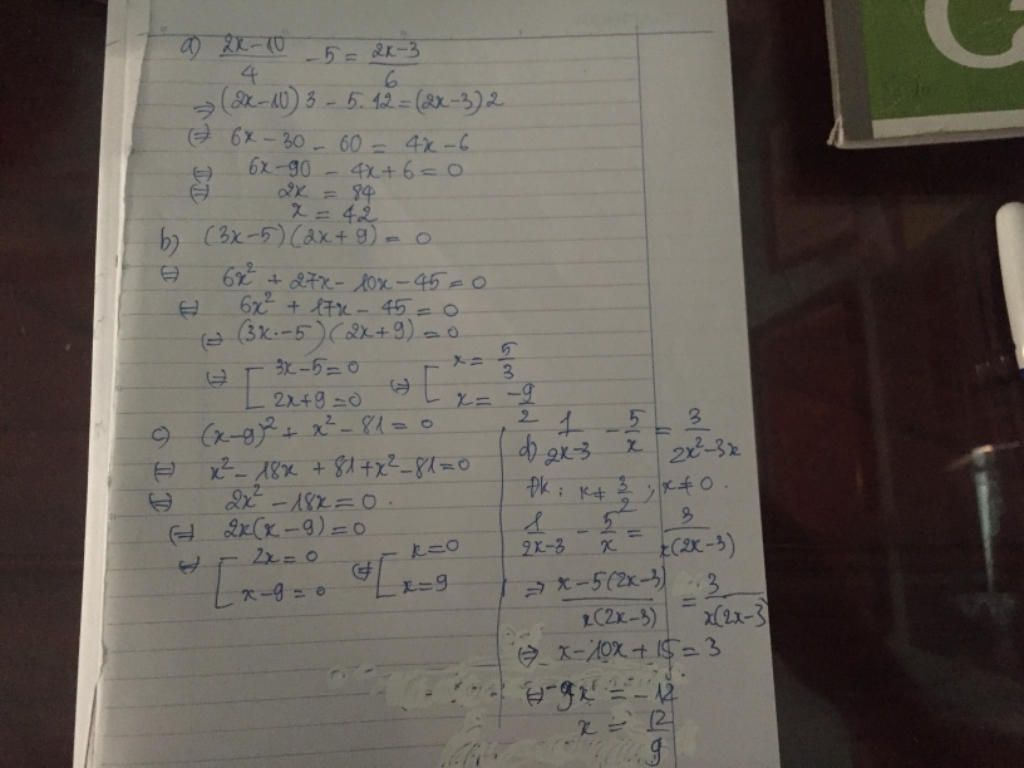 a) \frac{2x-10}{4} - 5 = \frac{2x-3}{6}
⇒ (2x-10) 3 - 5.12 = (2x-3) 2
⇔ 6x - 30 - 60 = 4x - 6
⇔ 6x - 90 - 4x + 6 = 0
⇔ 2x = 84
x = 42
b) (3x-5)(2x+9) = 0
⇔ 6x² + 27x - 10x - 45 = 0
⇔ 6x² + 17x - 45 = 0
⇔ (3x-5)(2x+9) = 0
⇔ [ 3x-5 = 0 ⇔ [ x = \frac{5}{3}
2x+9 = 0 x = \frac{-9}{2}
c) (x-9)² + x² - 81 = 0
⇔ x² - 18x + 81 + x² - 81 = 0
⇔ 2x² - 18x = 0.
⇔ 2x(x-9) = 0
⇔ [ 2x = 0 ⇔ [ x = 0
x-9 = 0 x = 9
d) \frac{1}{2x-3} - \frac{5}{x} = \frac{3}{2x²-3x}
Đk: x ≠ \frac{3}{2} ; x ≠ 0.
\frac{1}{2x-3} - \frac{5}{x} = \frac{3}{x(2x-3)}
⇒ \frac{x-5(2x-3)}{x(2x-3)} = \frac{3}{x(2x-3)}
⇔ x - 10x + 15 = 3
⇔ -9x = -12
x = \frac{12}{9}